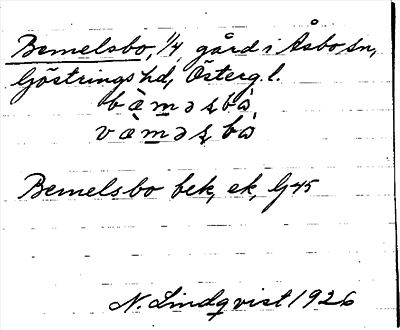 Bemelsbo, 1/4 gård i Åsbo sn,
Göstrings hd, Österg. l.
bæ̀məsbὼ
væ̀məsbὼ
Bemelsbo bek, ek, G 45
N. Lindqvist 1926